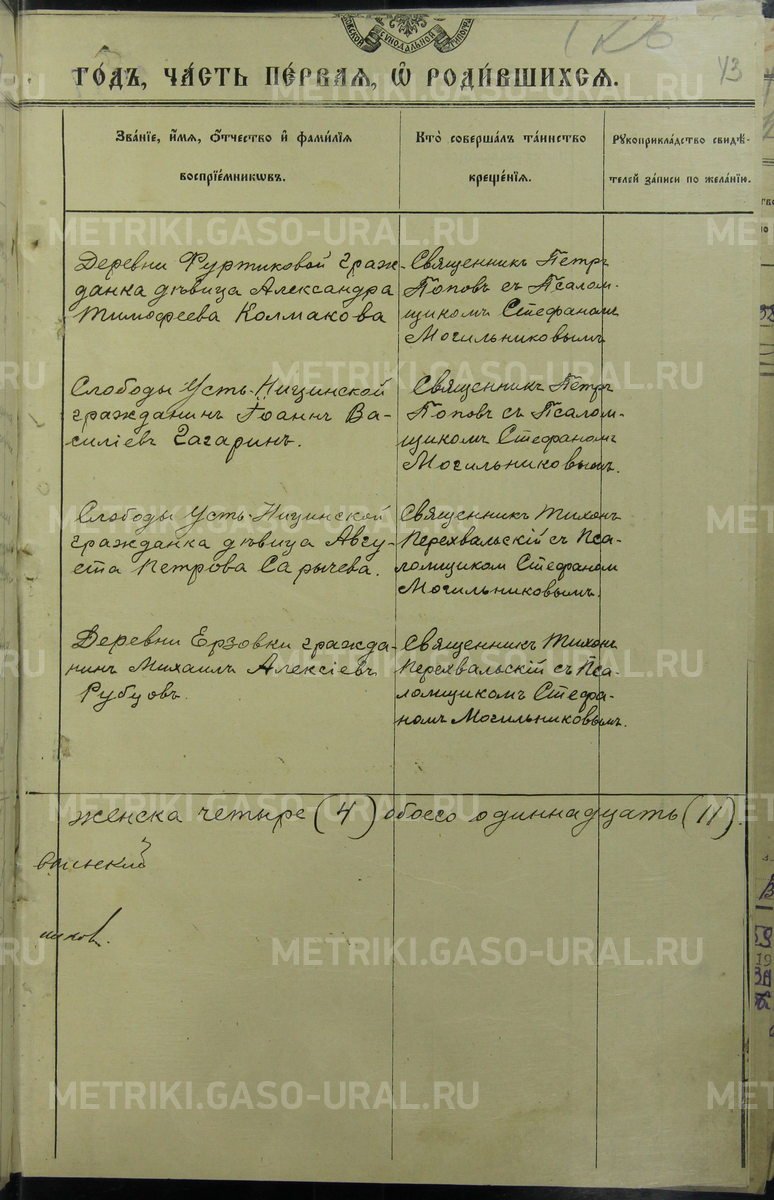 СУНОДАЛЬНОЙ
43
ГО́ДЪ, ЧА́СТЬ ПЕ́РВАЯ, Ѡ҆ РОДИ́ВШИХСЯ.
Зва́нїе, и҆́мя, ѻ҆́тчество и҆ фами́лїя
воспрїе́мникѡвъ.
Кто̀ соверша́лъ та́инство
креще́нїя.
Рꙋкоприкла́дство свидѣ́-
телей за́писи по жела́нїю.
Деревни Фуртиковой граж-
данка дѣвица Александра
Тимофеева Колмакова
Священникъ Петръ
Поповъ съ Псалом-
щикомъ Стефаномъ
Могильниковымъ
Слободы Усть-Ницинской
гражданинъ Іоаннъ Ва-
силіевъ Гагаринъ.
Священникъ Петръ
Поповъ съ Псалом-
щикомъ Стефаномъ
Могильниковымъ.
Слободы Усть-Ницинской
гражданка дѣвица Авгу-
ста Петрова Сарычева.
Священникъ Тихонъ
Перехвальскій съ Пса-
ломщиком Стефаном
Могильниковымъ.
Деревни Ерзовки гражда-
нинъ Михаилъ Алексіевъ
Рубцовъ.
Священникъ Тихонъ
Перехвальскій съ Пса-
ломщикомъ Стефа-
номъ Могильниковымъ.
женска четыре (4) обоего одиннадцать (11).
METRIKI.GASO-URAL.RU